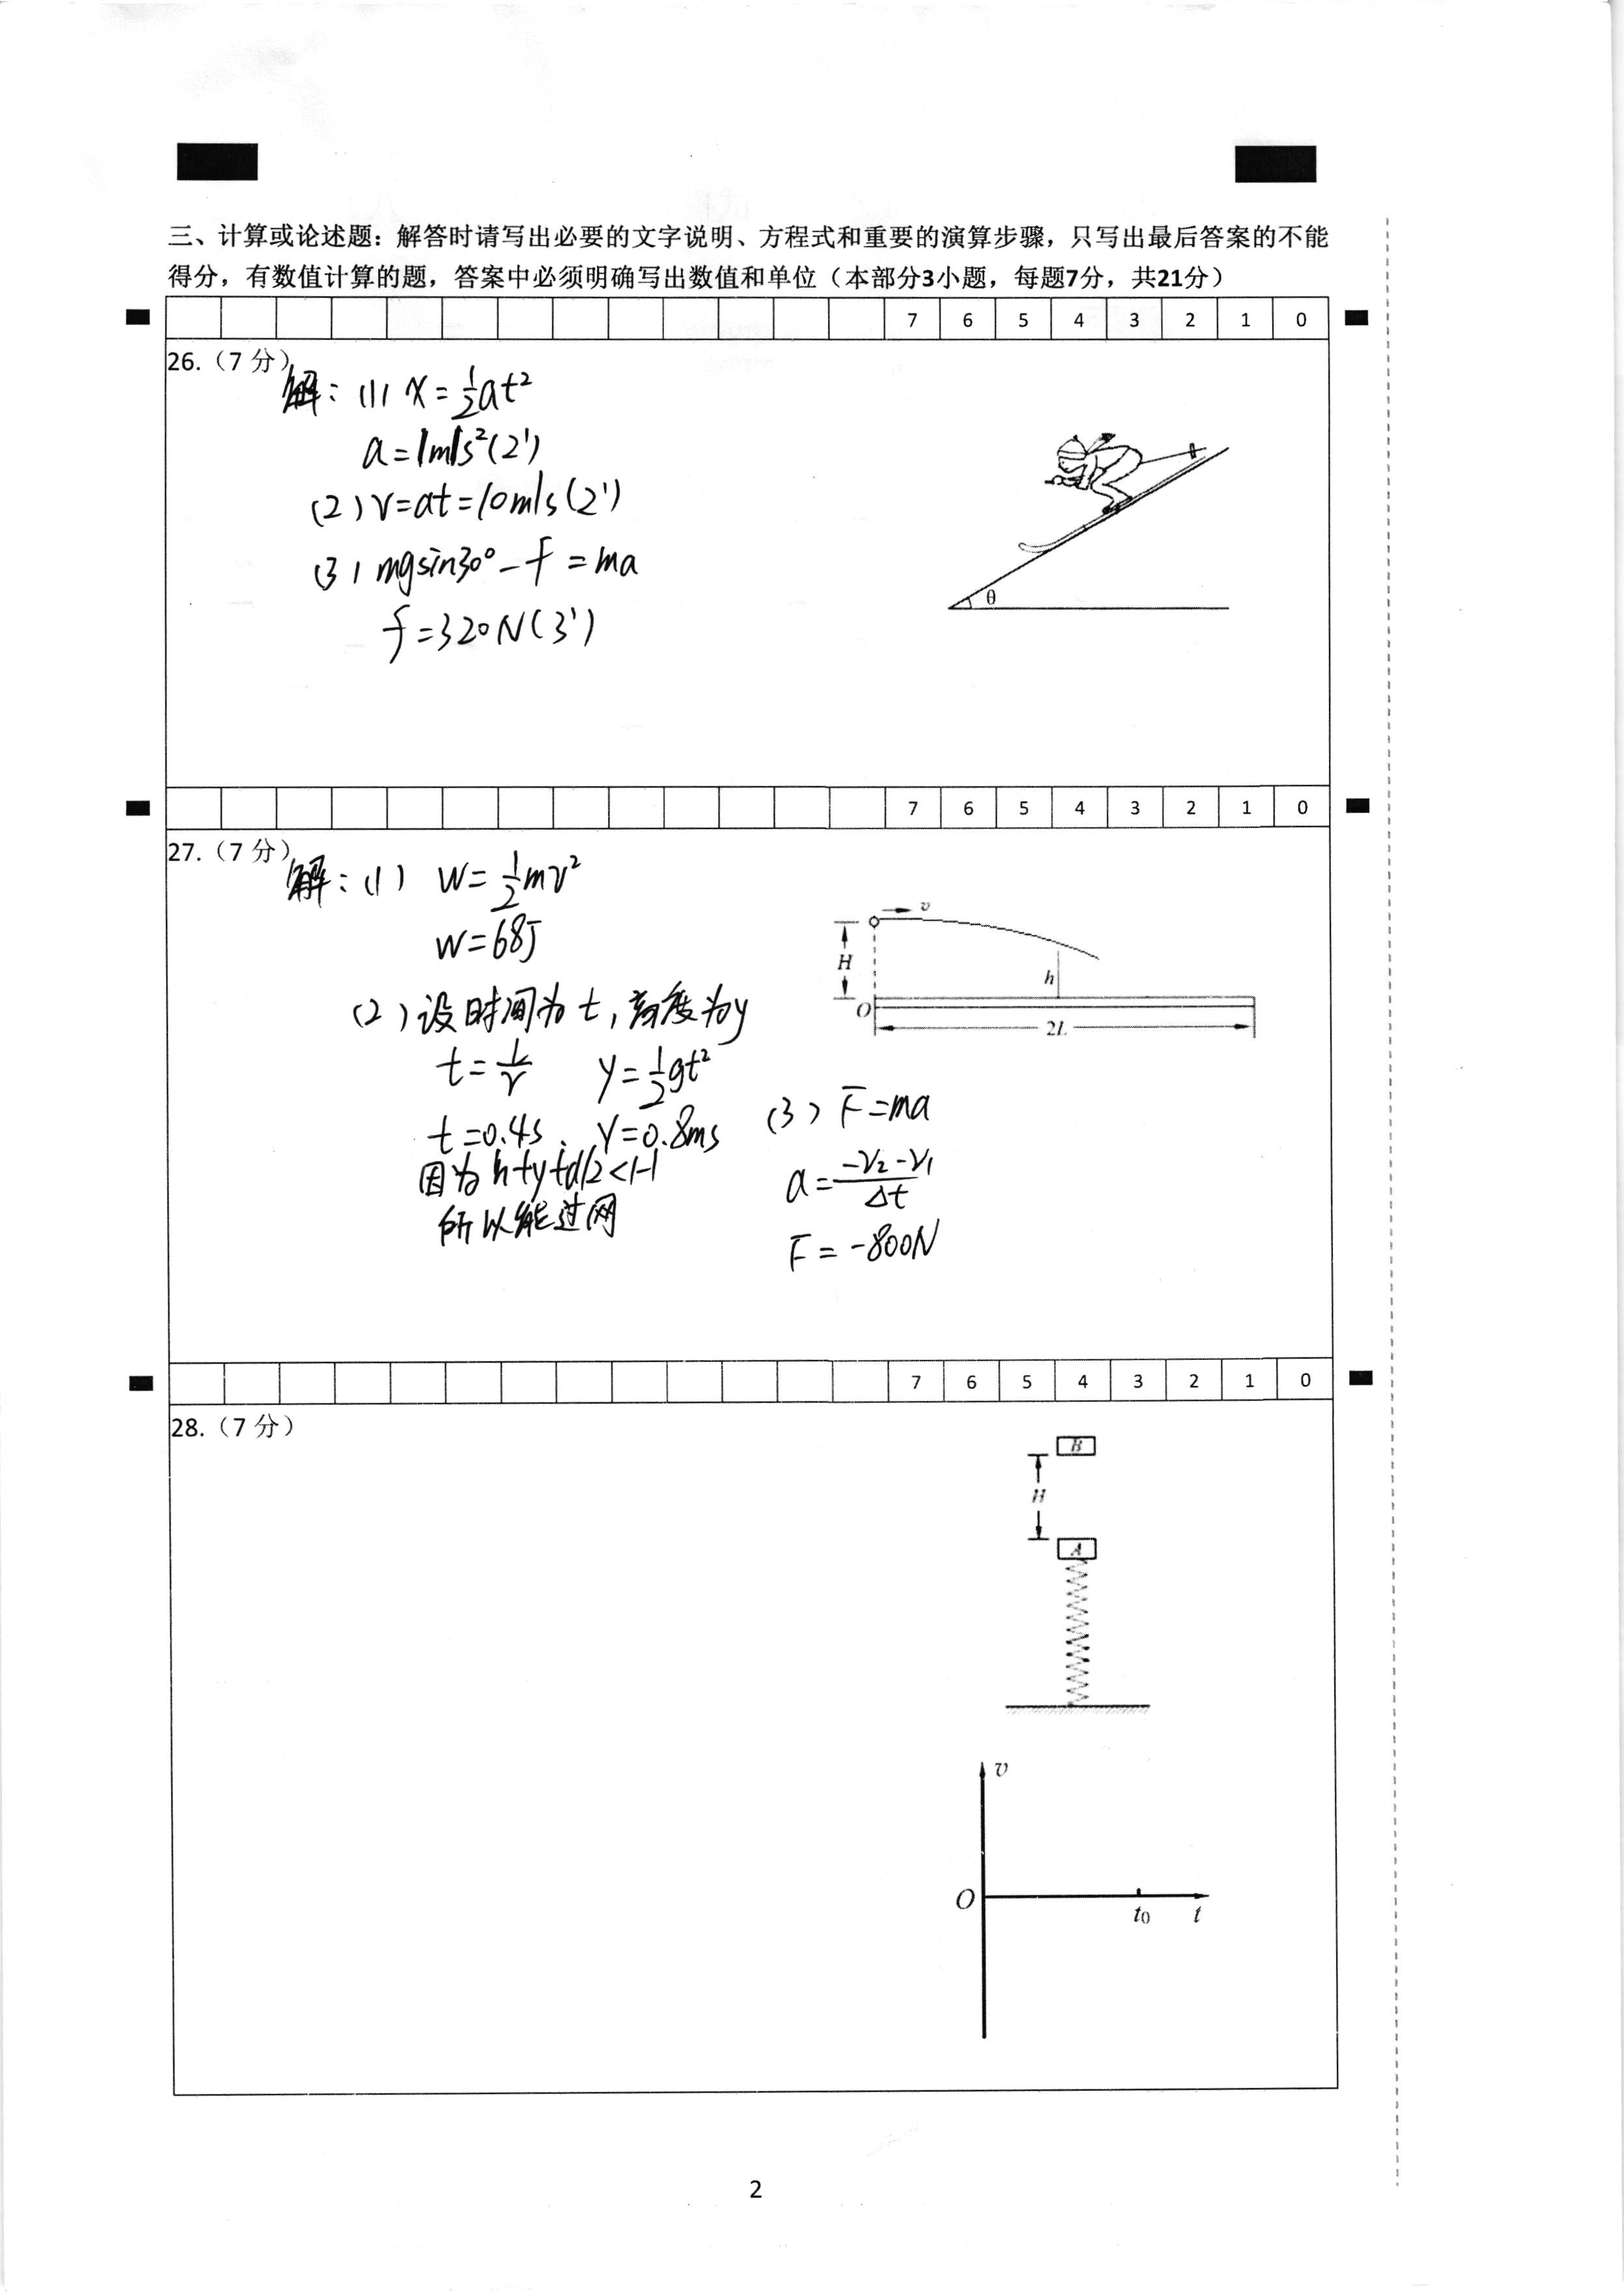 三、计算或论述题：解答时请写出必要的文字说明、方程式和重要的演算步骤，只写出最后答案的不能
得分，有数值计算的题，答案中必须明确写出数值和单位（本部分3小题，每题7分，共21分）
7 6 5 4 3 2 1 0
26.（7 分）
解：(1) x=½at²
a=1m/s²(2')
(2) v=at=10m/s(2')
(3) mgsin30°-f=ma
f=320N(3')
θ
7 6 5 4 3 2 1 0
27.（7 分）
解：(1) W=½mv²
W=68J
(2)设时间为t，高度为y
t=L/v y=½gt²
t=0.4s. y=0.8ms
因为h+y+d/2<H
所以能过网
(3) F=ma
a=(-v₂-v₁)/Δt
F=-800N
v
H
h
O
2L
7 6 5 4 3 2 1 0
28.（7 分）
B
H
A
v
O
t₀ t
2